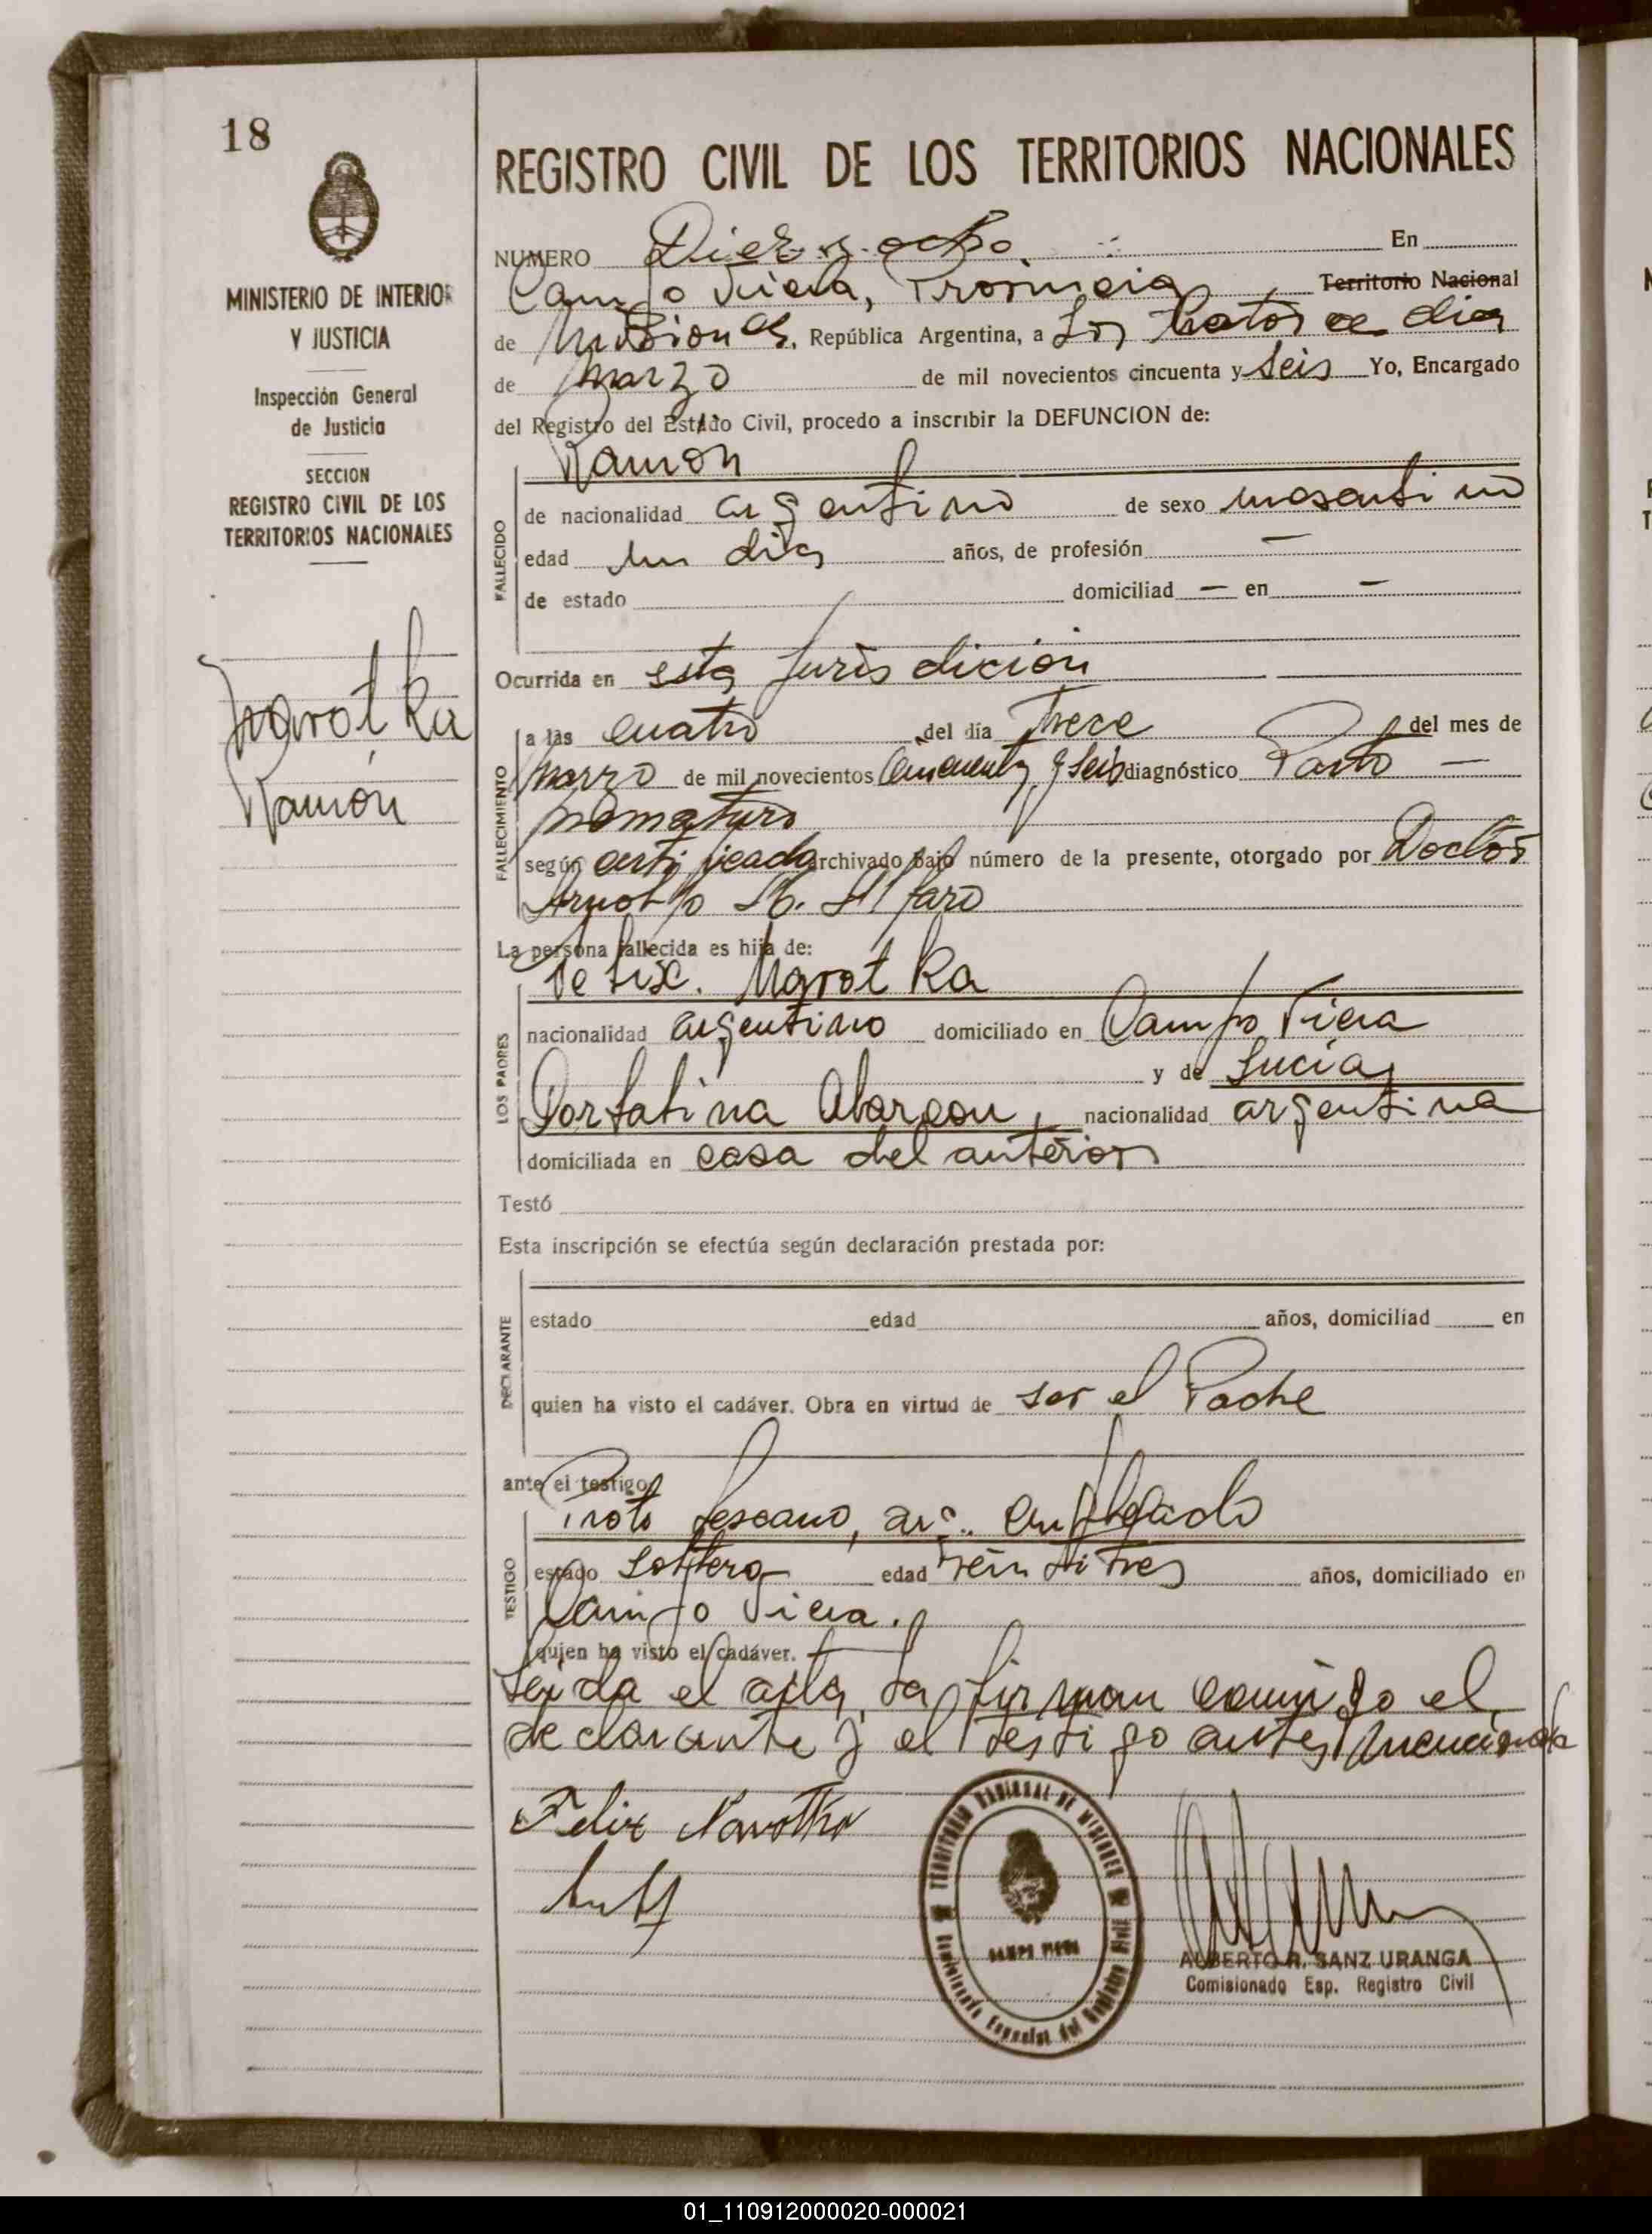 18
MINISTERIO DE INTERIOR
Y JUSTICIA
Inspección General
de Justicia
SECCION
REGISTRO CIVIL DE LOS
TERRITORIOS NACIONALES
Ramón
REGISTRO CIVIL DE LOS TERRITORIOS NACIONALES
NUMERO Diez y ocho En
Campo Viera, Provincia Territorio Nacional
de Misiones, República Argentina, a los catorce dias
de marzo de mil novecientos cincuenta y seis Yo, Encargado
del Registro del Estado Civil, procedo a inscribir la DEFUNCION de:
Ramon
FALLECIDO
de nacionalidad argentino de sexo
edad un dia años, de profesión —
de estado domiciliad — en —
Ocurrida en esta Jurisdicion
FALLECIMIENTO
a las cuatro del día Trece del mes de
marzo de mil novecientos cincuenta y seis diagnóstico Parto —
según certificado archivado bajo número de la presente, otorgado por Doctor
La persona fallecida es hija de:
LOS PADRES
nacionalidad argentino domiciliado en Campo Viera
y de Lucia
nacionalidad argentina
domiciliada en casa del anterior
Testó
Esta inscripción se efectúa según declaración prestada por:
DECLARANTE
estado edad años, domiciliad en
quien ha visto el cadáver. Obra en virtud de ser el Padre
ante el testigo
Lescano, arg. empleado
TESTIGO
estado soltero edad veintitres años, domiciliado en
Campo Viera.
quien ha visto el cadáver.
Leida el acta, la firman conmigo el
declarante y el testigo antes mencionado
Felix
TERRITORIO NACIONAL DE MISIONES
CAMPO VIERA
ALBERTO R. SANZ URANGA
Comisionado Esp. Registro Civil
01_110912000020-000021